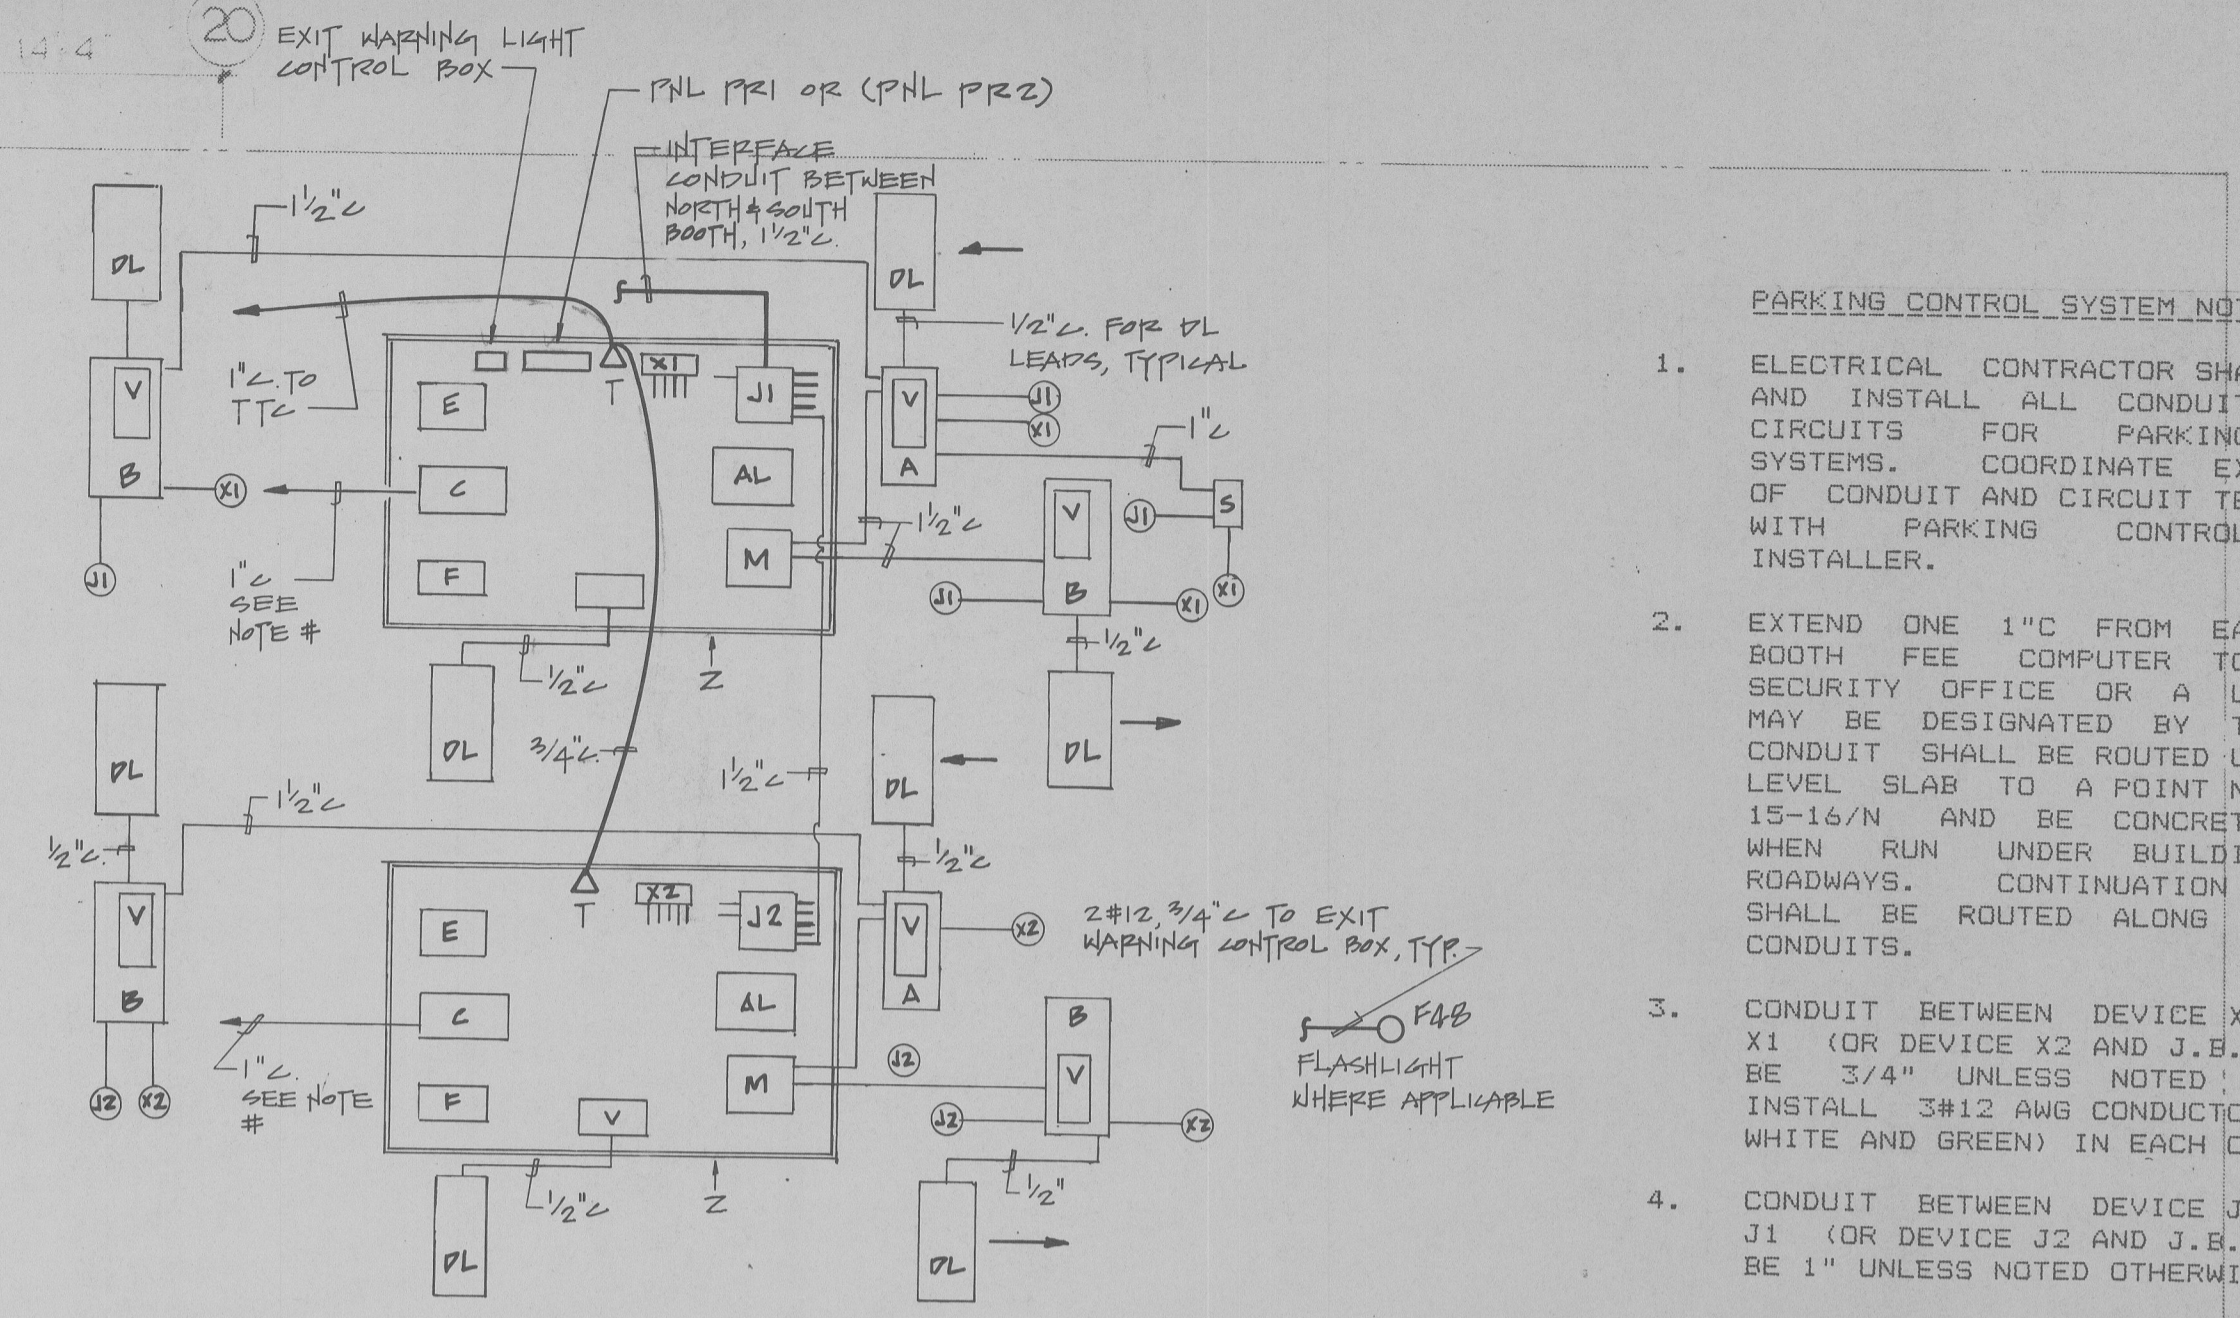 14'-4"
20
EXIT WARNING LIGHT
CONTROL BOX
PNL PR1 OR (PNL PR2)
INTERFACE
CONDUIT BETWEEN
NORTH & SOUTH
BOOTH, 1½"C.
1½"C
DL
DL
½"C. FOR DL
LEADS, TYPICAL
1"C. TO
TTC
V
B
X1
J1
E
C
F
T
X1
J1
AL
M
V
A
J1
X1
1"C
S
J1
X1
1½"C
V
B
J1
X1
½"C
DL
1"C
SEE
NOTE #
½"C
Z
DL
3/4"C.
1½"C
DL
DL
1½"C
½"C.
½"C
V
B
J2
X2
E
C
F
T
X2
J2
AL
M
V
V
A
X2
J2
B
V
J2
X2
1"C.
SEE NOTE
#
½"C
Z
½"
DL
DL
2#12, 3/4"C TO EXIT
WARNING CONTROL BOX, TYP.
F48
FLASHLIGHT
WHERE APPLICABLE
PARKING CONTROL SYSTEM NO
1. ELECTRICAL CONTRACTOR SHA
AND INSTALL ALL CONDUIT
CIRCUITS FOR PARKING
SYSTEMS. COORDINATE EX
OF CONDUIT AND CIRCUIT TE
WITH PARKING CONTROL
INSTALLER.
2. EXTEND ONE 1"C FROM EA
BOOTH FEE COMPUTER TO
SECURITY OFFICE OR A L
MAY BE DESIGNATED BY T
CONDUIT SHALL BE ROUTED U
LEVEL SLAB TO A POINT N
15-16/N AND BE CONCRET
WHEN RUN UNDER BUILDI
ROADWAYS. CONTINUATION
SHALL BE ROUTED ALONG
CONDUITS.
3. CONDUIT BETWEEN DEVICE X
X1 (OR DEVICE X2 AND J.B.
BE 3/4" UNLESS NOTED
INSTALL 3#12 AWG CONDUCTO
WHITE AND GREEN) IN EACH C
4. CONDUIT BETWEEN DEVICE J
J1 (OR DEVICE J2 AND J.B.
BE 1" UNLESS NOTED OTHERWI